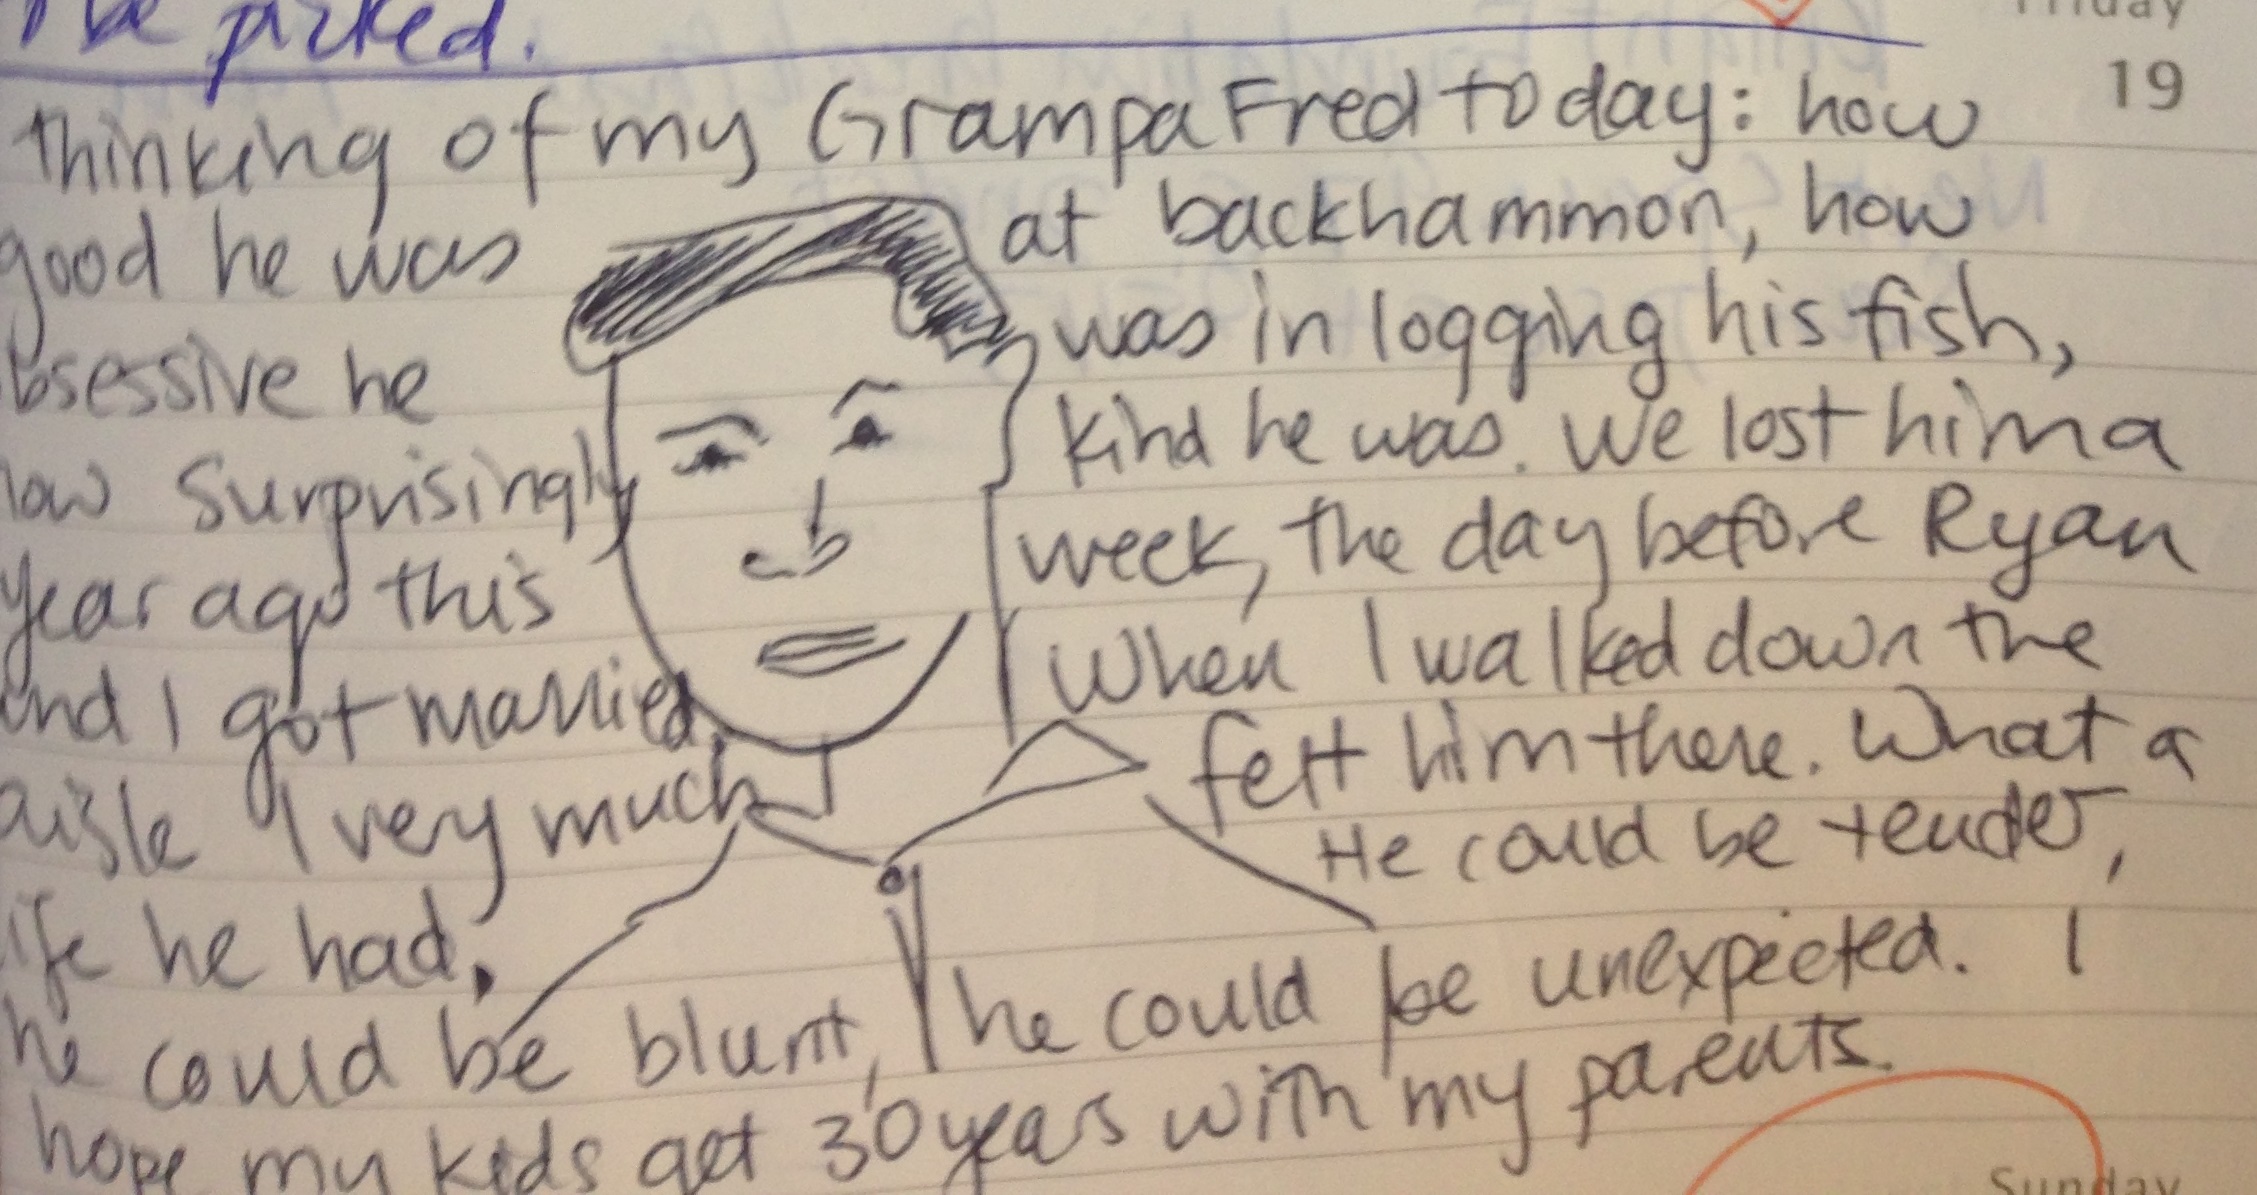 be picked.
Friday
19
Thinking of my Grampa Fred today: how
good he was at backhammon, how
bsessive he was in logging his fish,
how surprisingly kind he was. We lost him a
year ago this week, the day before Ryan
and I got married. When I walked down the
aisle I very much felt him there. What a
life he had. He could be tender,
he could be blunt, he could be unexpected. I
hope my kids get 30 years with my parents.
Sunday